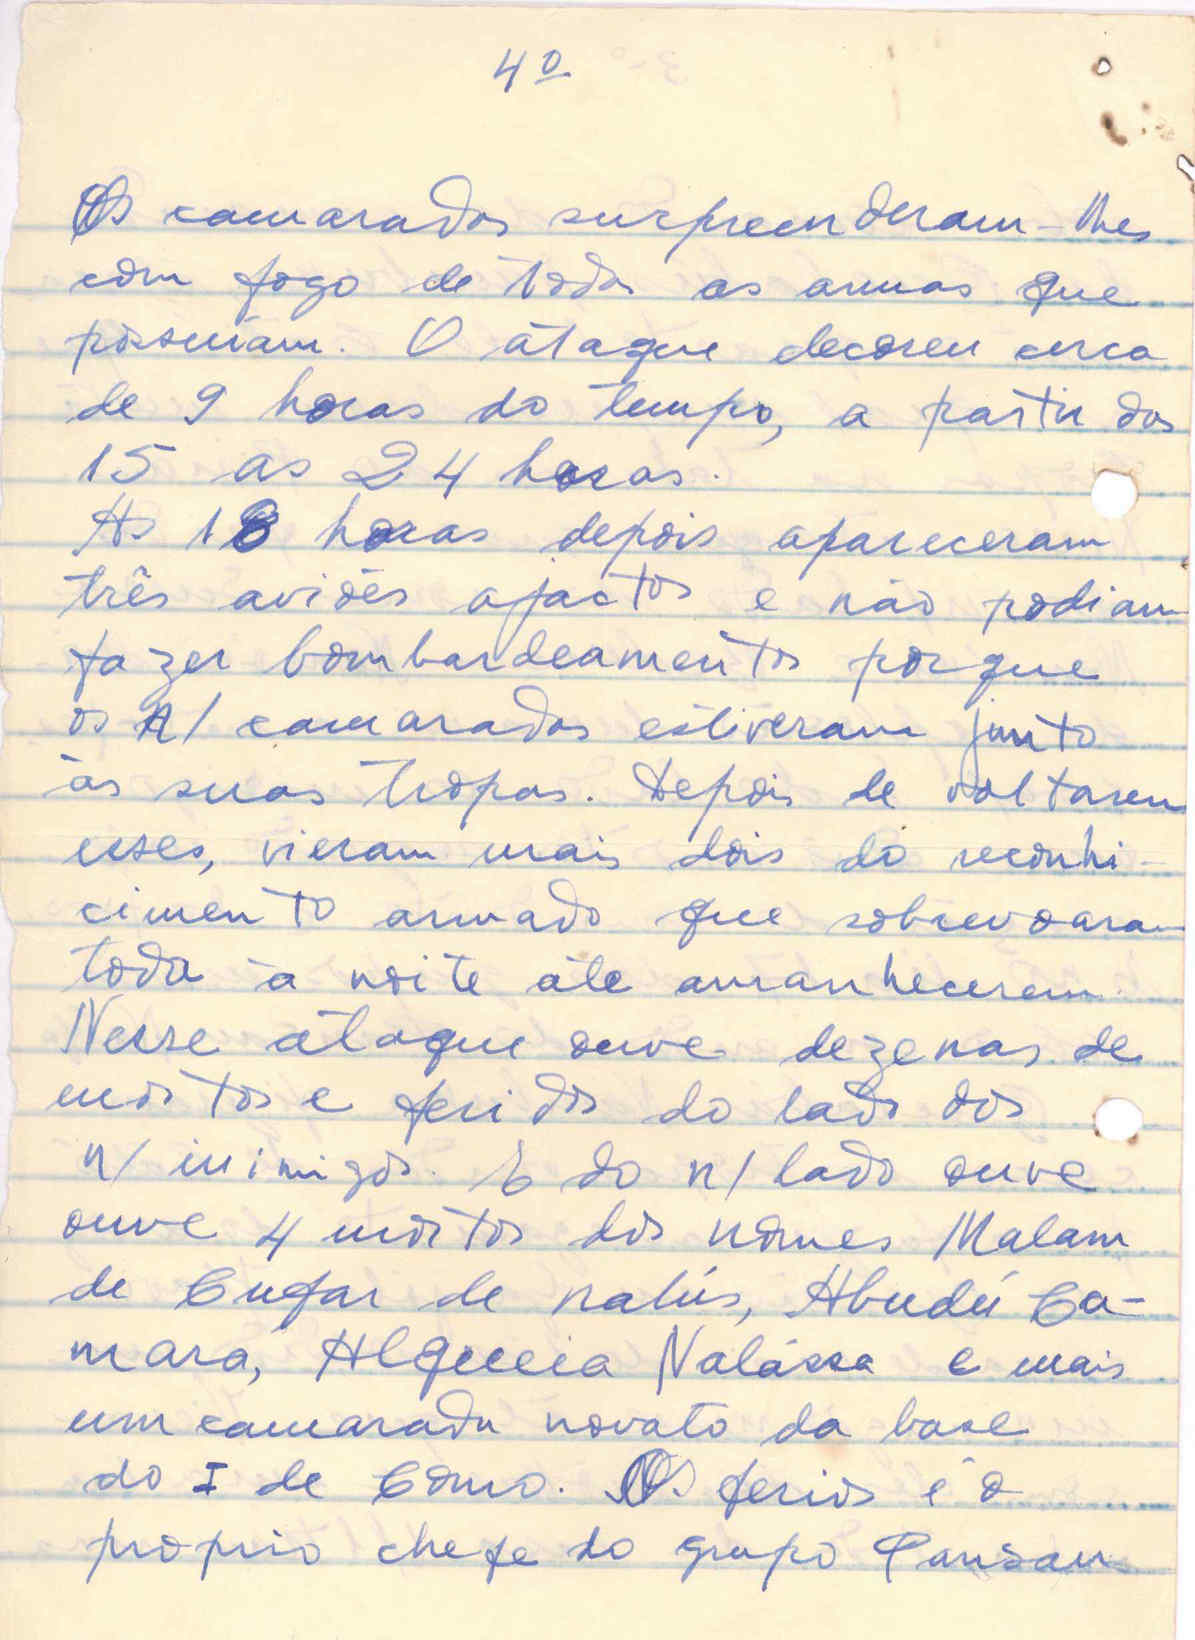 4º
Os camaradas surpreenderam-lhes
com fogo de todas as armas que
possuiam. O átaque decoreu cerca
de 9 horas do tempo, a partir das
15 as 24 horas.
As 18 horas depois apareceram
três aviões ajactos e não podiam
fazer bombardeamentos porque
os n/ camaradas estiveram junto
às suas tropas. Depois de voltarem
esses, vieram mais dois do reconhi-
cimento armado que sobrevoaram
toda a noite áte amanhecerem.
Nesse átaque ouve dezenas de
mortos e feridos do lado dos
n/ inimigos. E do n/ lado ouve
ouve 4 mortos dos nomes Malam
de Cufar de nalús, Abudú Ca-
mara, Nalássa e mais
um camarada novato da base
do I de Como. Os ferios é o
proprio chefe do grupo Pansau